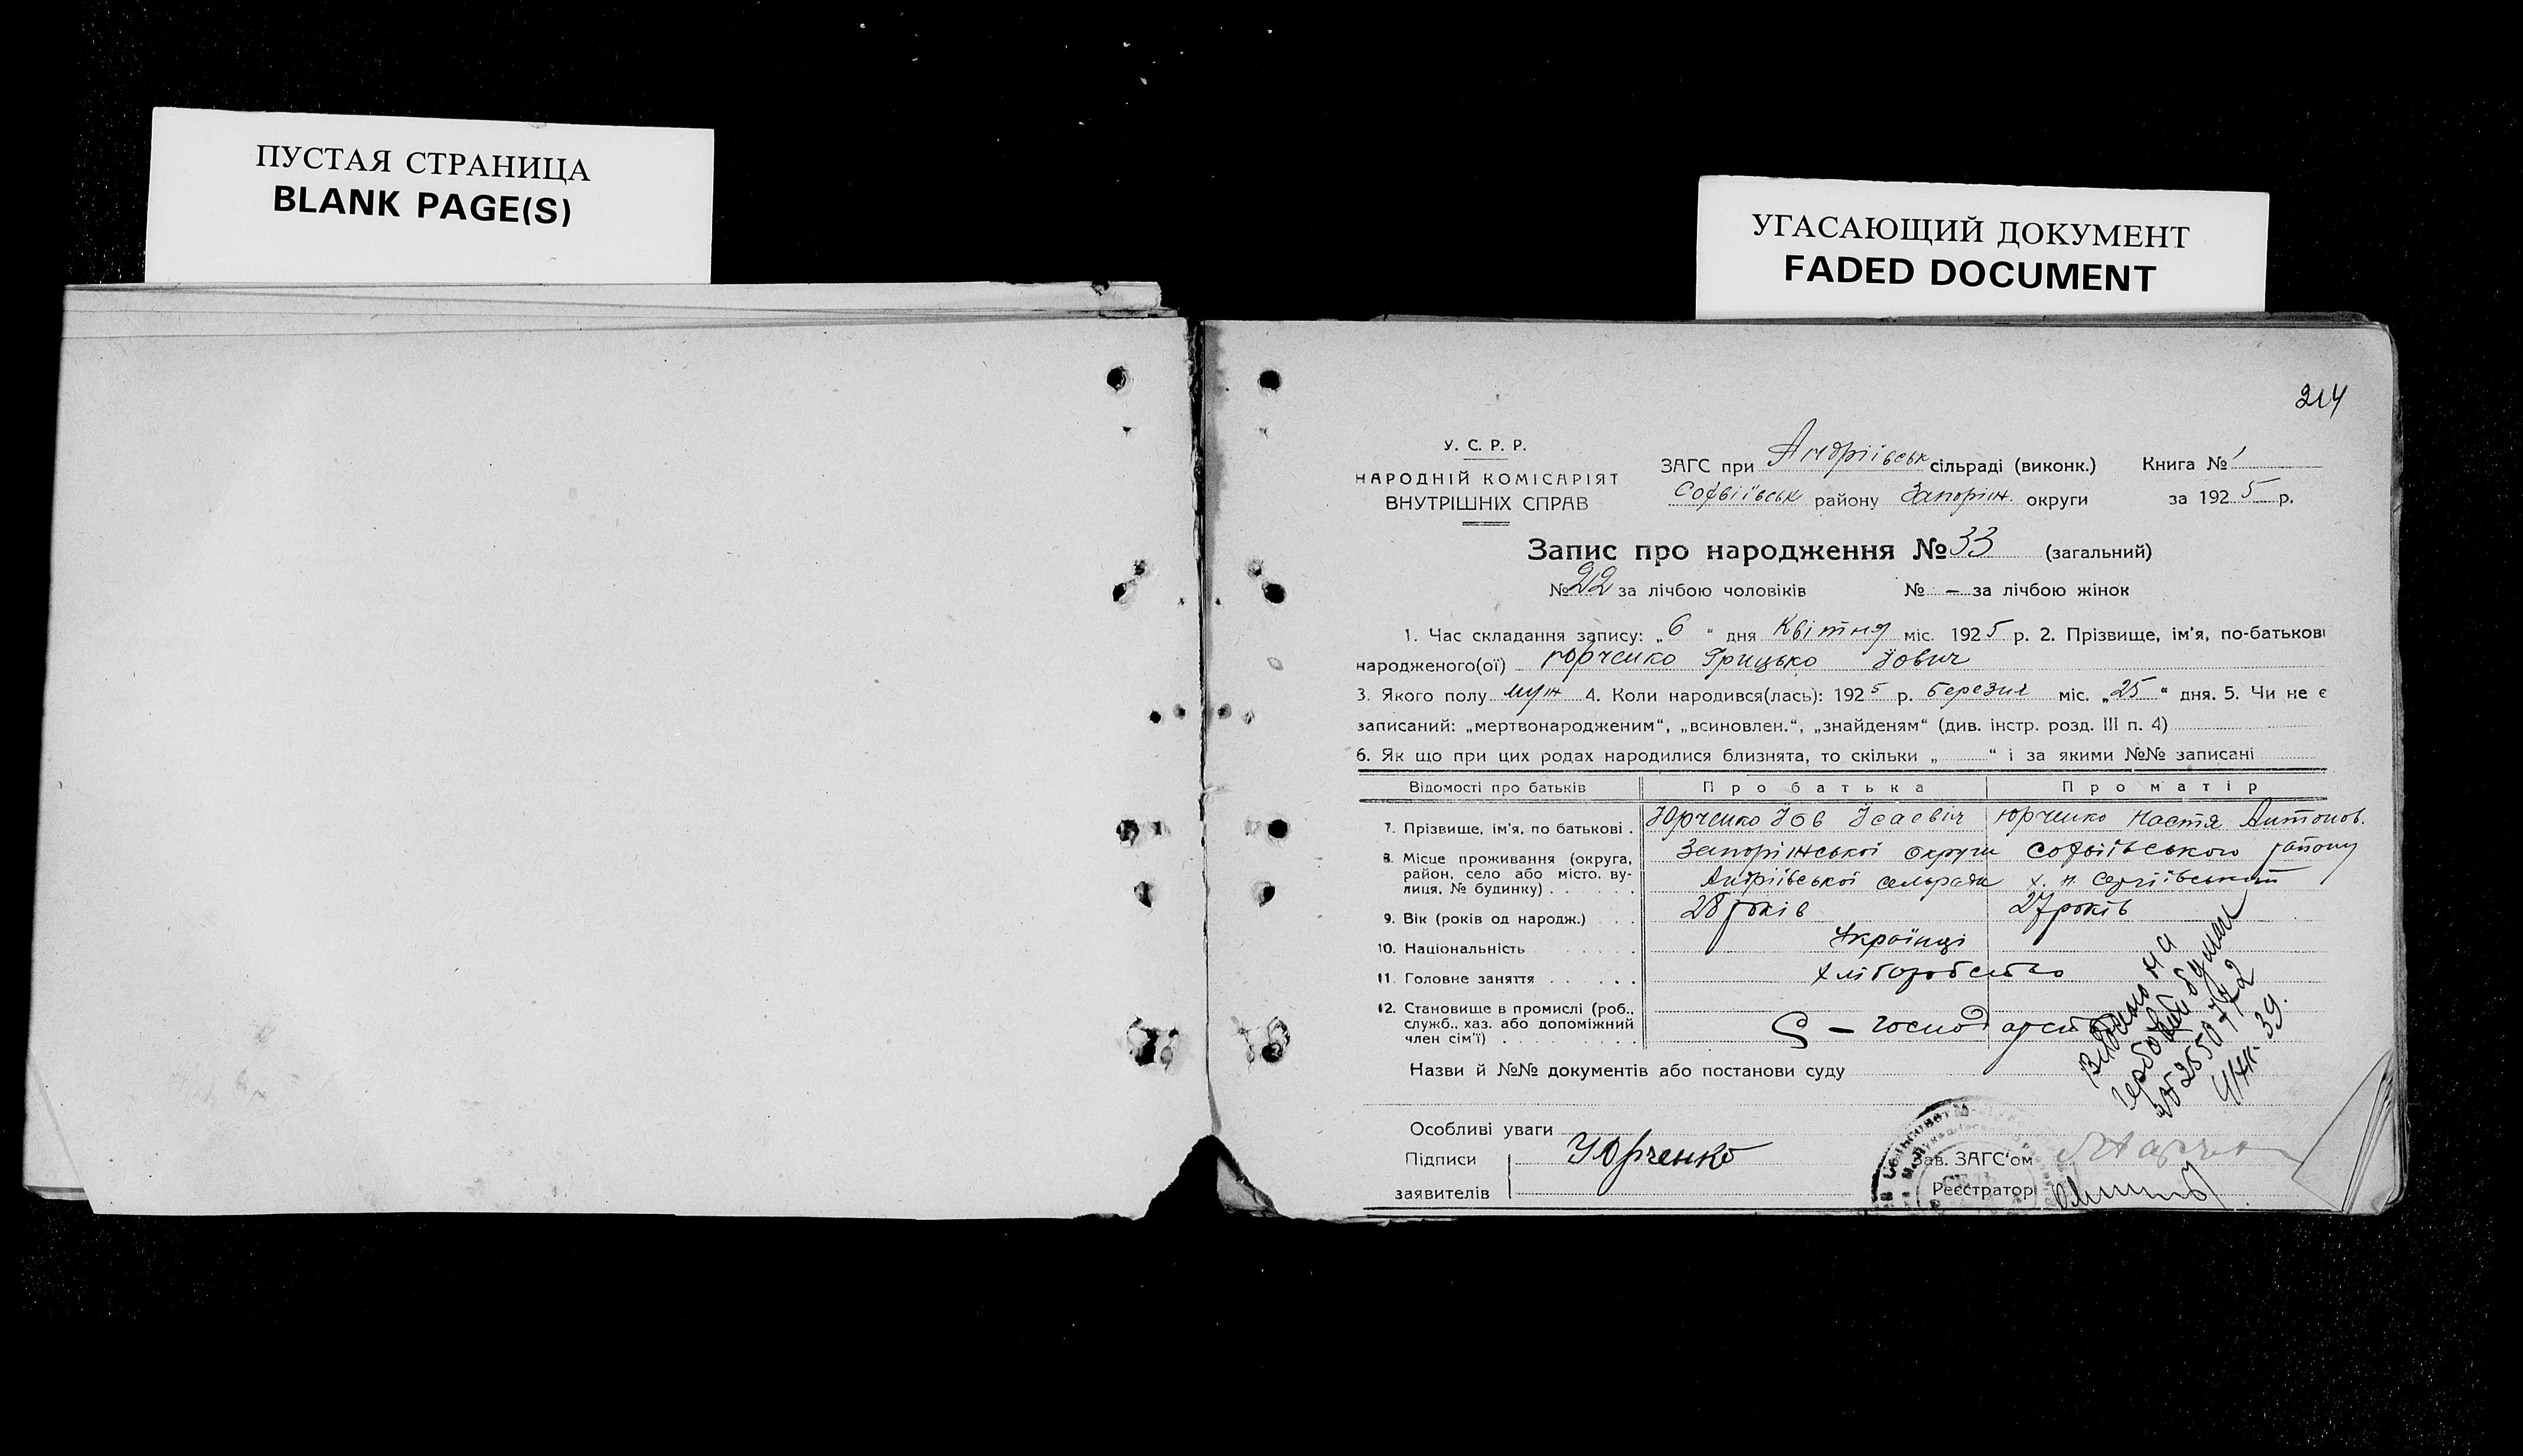 ПУСТАЯ СТРАНИЦА
BLANK PAGE(S)
УГАСАЮЩИЙ ДОКУМЕНТ
FADED DOCUMENT
214
У. С. Р. Р.
НАРОДНІЙ КОМІСАРІЯТ
ВНУТРІШНІХ СПРАВ
ЗАГС при Андріївськ сільраді (виконк.) Книга № 1
Софіївськ району Запоріж. округи за 1925 р.
Запис про народження № 33 (загальний)
№ 22 за лічбою чоловіків № – за лічбою жінок
1. Час складання запису: „6" дня Квітня міс. 1925 р. 2. Прізвище, ім'я, по-батькові
народженого(ої) Юрченко Грицько Йович
3. Якого полу муж 4. Коли народився(лась): 1925 р. березня міс. „25" дня. 5. Чи не є
записаний: „мертвонародженим", „всиновлен.", „знайденям" (див. інстр. розд. III п. 4)
6. Як що при цих родах народилися близнята, то скільки „ " і за якими №№ записані
Відомості про батьків Про батька Про матір
7. Прізвище, ім'я, по батькові . Юрченко Йов Ісаєвіч Юрченко Настя Антонов.
8. Місце проживання (округа, Запоріжської округи Софіївського району
район, село або місто, ву-
лиця, № будинку) . . . . . . Андріївської сельради х. н. Сергіївський
9. Вік (років од народж.) . . . 28 років 27 років
10. Національність . . . . Українці
11. Головне заняття . . . . . . Хліборобство
12. Становище в промислі (роб.,
служб., хаз. або допоміжний
член сім'ї) . . . . . . . . . – господарси
Видано на
гербовій бумаги
2550772
39.
Назви й №№ документів або постанови суду
Особливі уваги
Підписи Юрченко Зав. ЗАГС'ом
заявителів Реєстратор